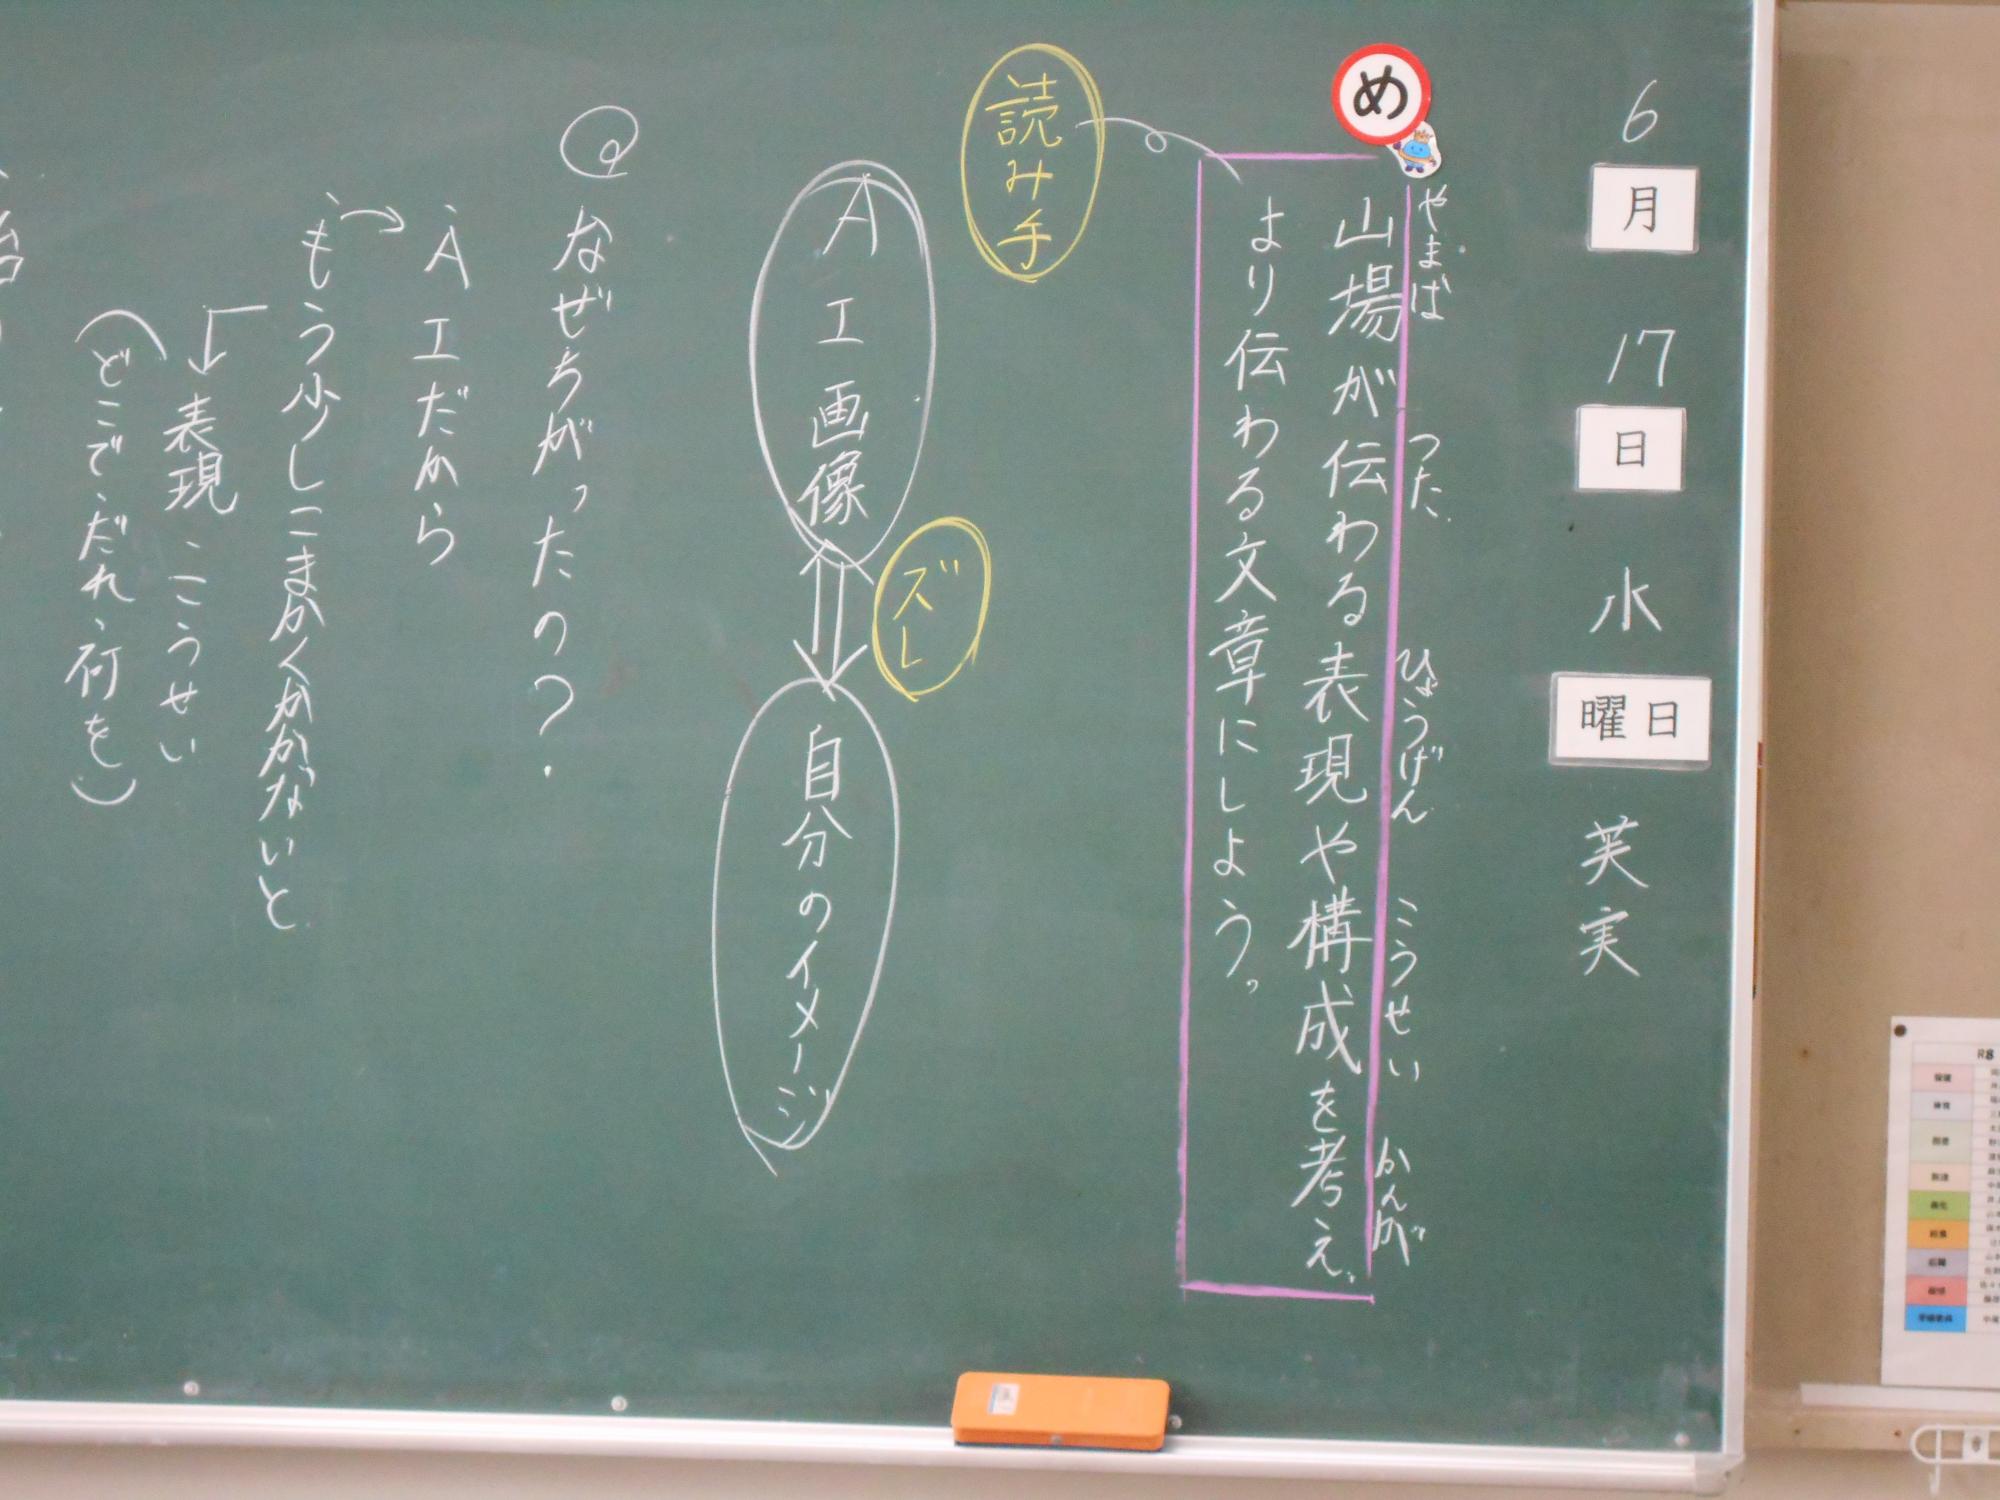 6月17日水曜日 芙実
め
やまば つた ひょうげん こうせい かんが
山場が伝わる表現や構成を考え、
より伝わる文章にしよう。
読み手
ズレ
AI画像
自分のイメージ
Q なぜちがったの?
・AIだから
・もう少しこまかくかかないと
表現・こうせい
(どこで・だれ・何を)
R8